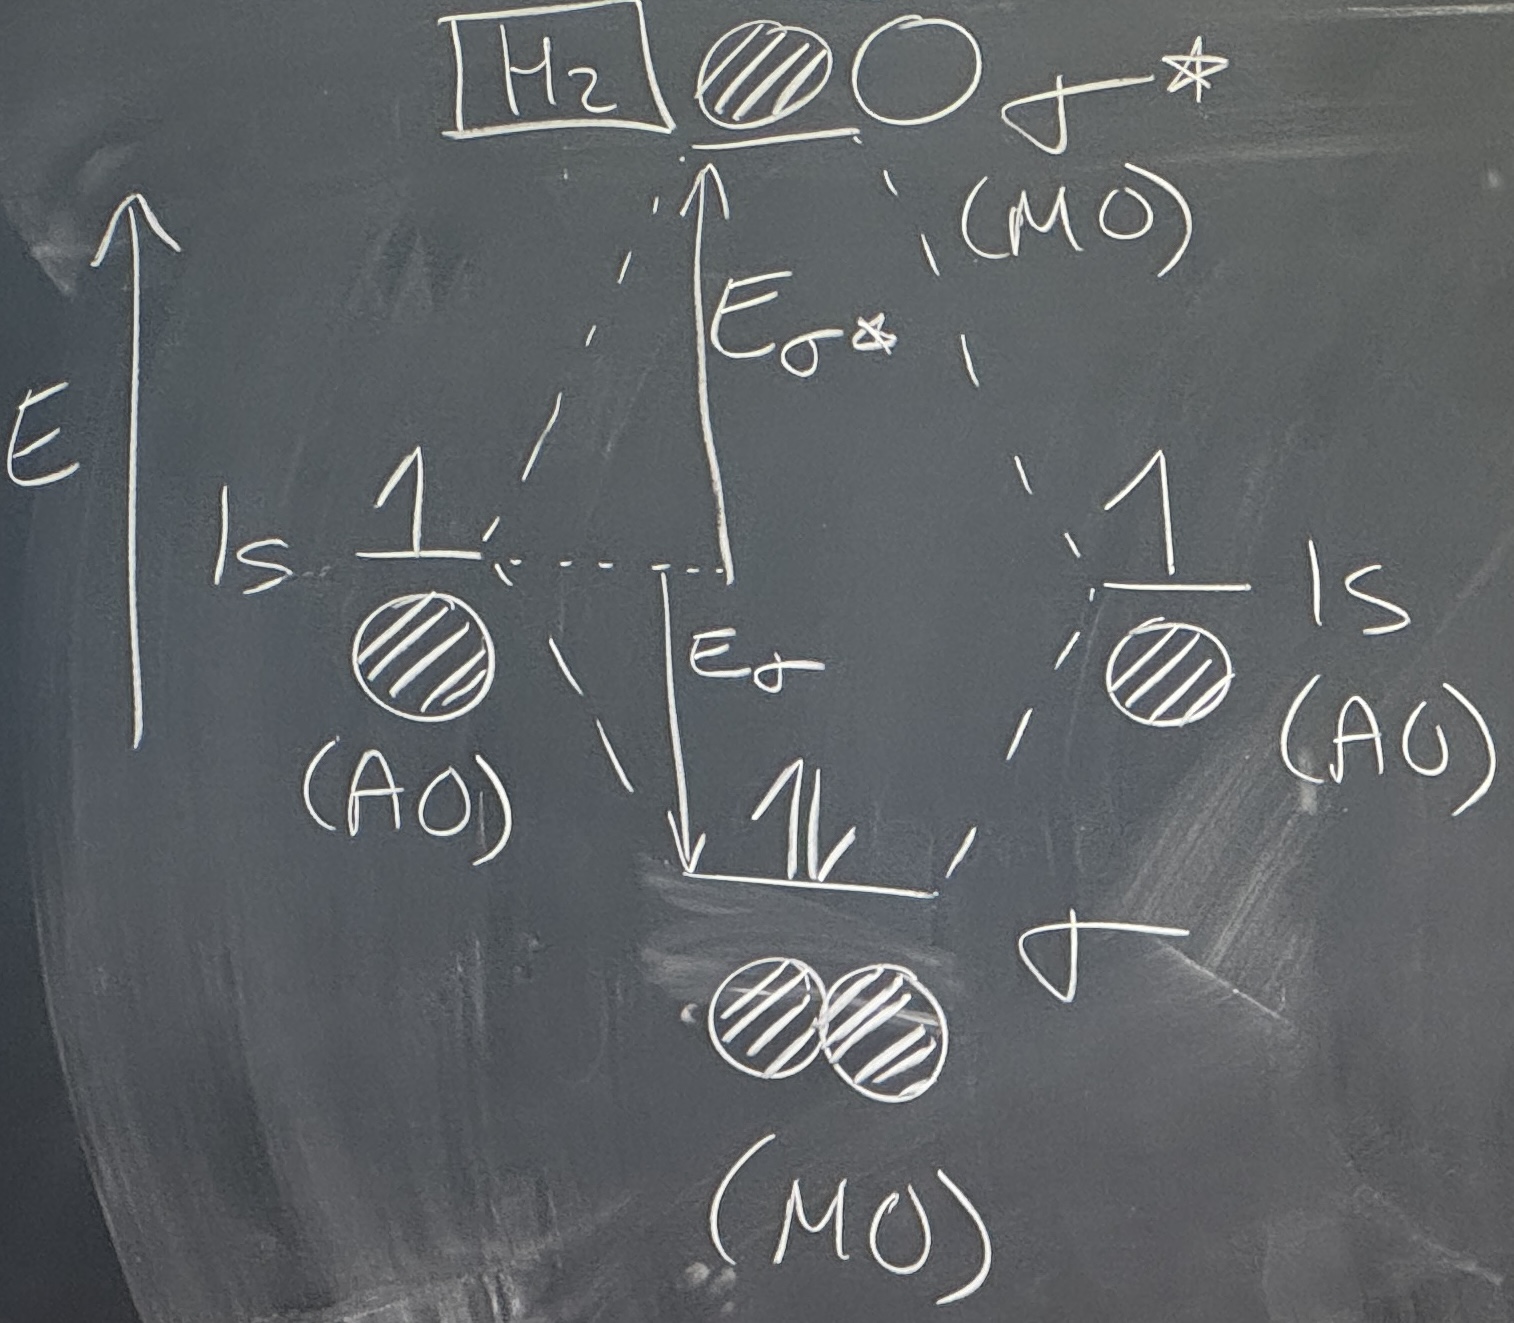 H₂ σ*
(MO)
E
Eσ*
1s
1s
(AO)
Eσ
(AO)
σ
(MO)